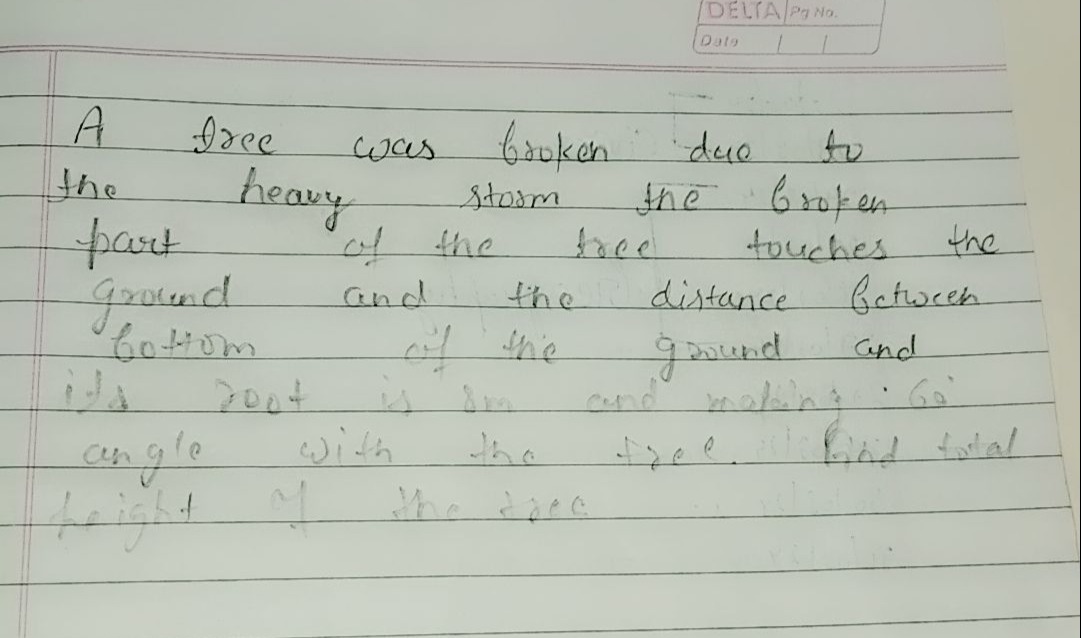 DELTA Pg No.
Date / /
A tree was broken due to
the heavy storm the broken
part of the tree touches the
ground and the distance between
bottom of the ground and
its root is 8m and making 60°
angle with the tree. find total
height of the tree